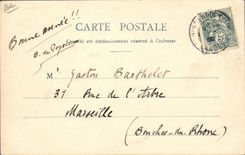 Bonne année!!
CARTE POSTALE
Ce côté est exclusivement réservé à l'adresse
Mr Gaston Barthelot
31 Rue de l'Arbre
Marseille
(Bouches-du-Rhône)